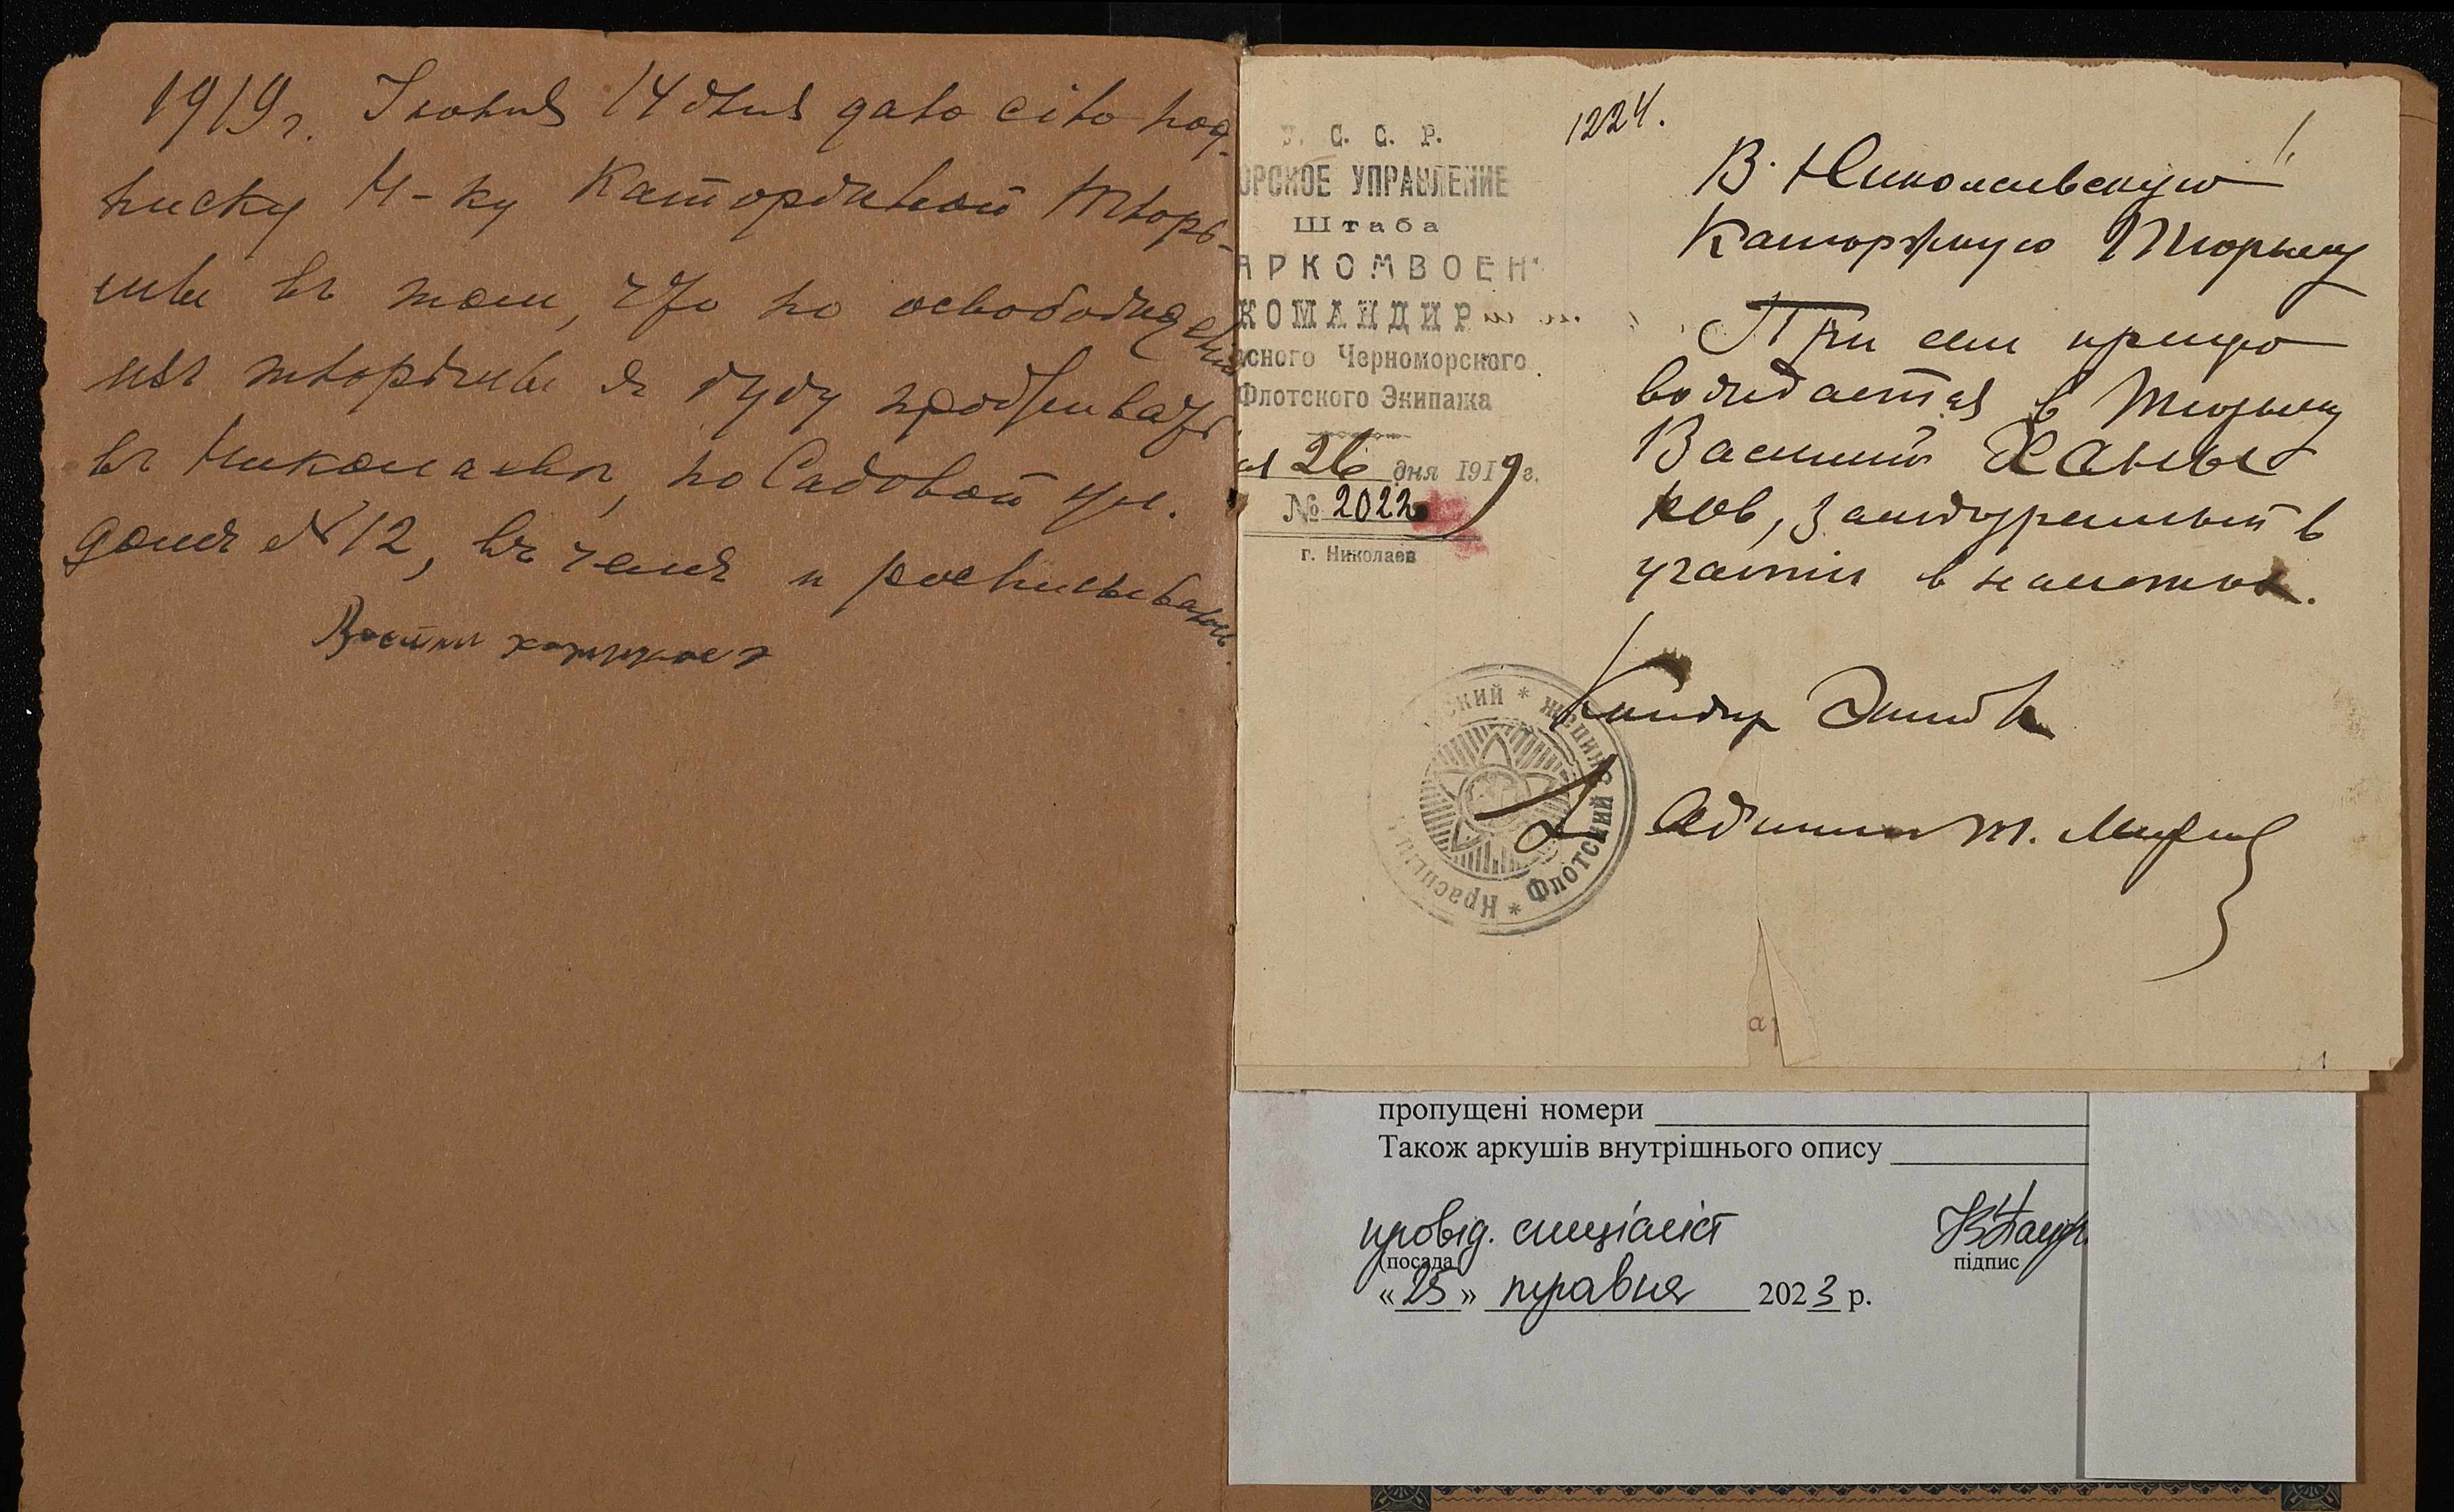 1919 г. Іюня 14 дня даю сію под-
писку Н-ку Каторжной тюрь-
мы въ том, что по освобожден
изъ тюрьмы я буду проживать
въ Николаевѣ, по Садовой ул.
домъ № 12, въ чемъ и росписываюсь.
Васили
1224.
С. С. Р.
ОРСКОЕ УПРАВЛЕНИЕ
Штаба
АРКОМВОЕН
КОМАНДИР
асного Черноморского
Флотского Экипажа
26 дня 1919 г.
№ 2022
г. Николаев
В Николаевскую
Каторжную Тюрьму
При сем препро
вождается в Тюрьму
Василий Ханы
ков, заподозренный в
участіи в налетах.
Адъютант
Красный * ский * Флотский Экипаж
ар
1
пропущені номери
Також аркушів внутрішнього опису
провід. спеціаліст
(посада
підпис
«25» травня 2023 р.